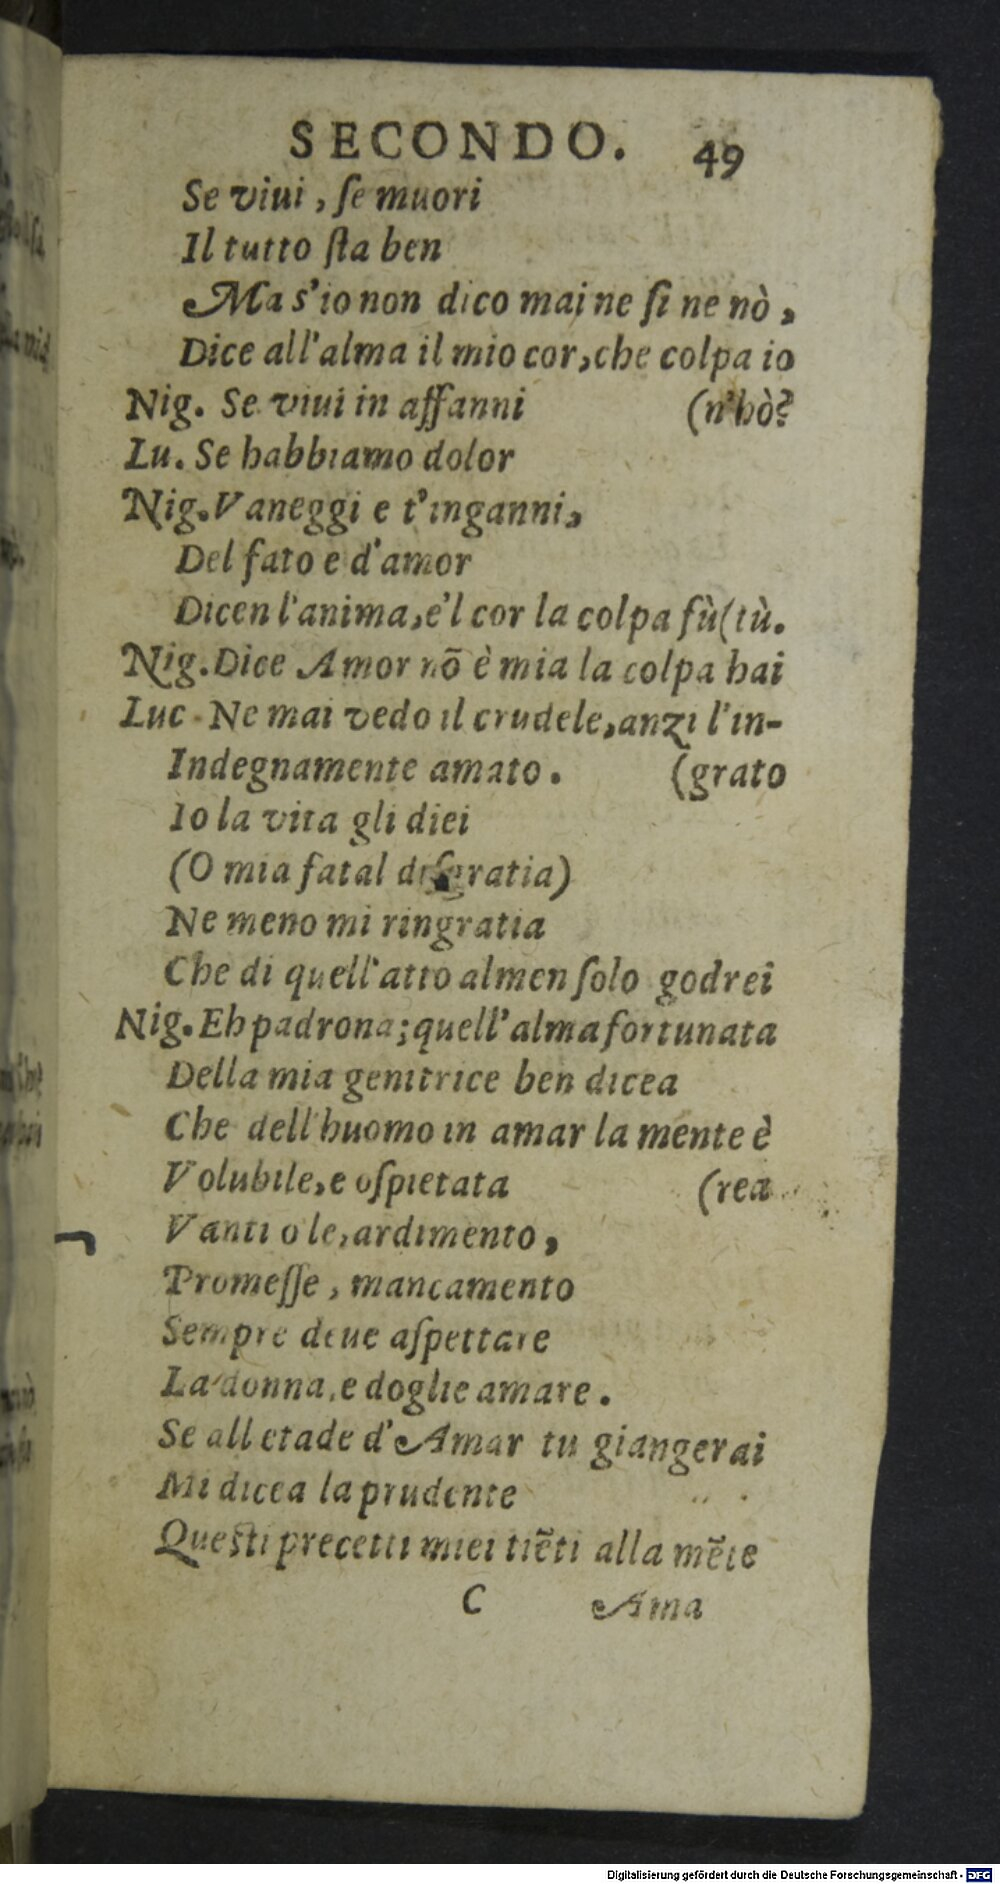 SECONDO. 49
Se viui, ſe muori
Il tutto ſta ben
Ma s'io non dico mai ne ſi ne nò,
Dice all'alma il mio cor, che colpa io
Nig. Se viui in affanni (n'hò?
Lu. Se habbiamo dolor
Nig. Vaneggi e t'inganni,
Del fato e d'amor
Dicen l'anima, e'l cor la colpa fù (tù.
Nig. Dice Amor nõ è mia la colpa hai
Luc. Ne mai vedo il crudele, anzi l'in-
Indegnamente amato. (grato
Io la vita gli diei
(O mia fatal diſgratia)
Ne meno mi ringratia
Che di quell'atto almen ſolo godrei
Nig. Eh padrona; quell'alma fortunata
Della mia genitrice ben dicea
Che dell'huomo in amar la mente è
Volubile, e oſpietata (rea
Vanti o le, ardimento,
Promeſſe, mancamento
Sempre deue aſpettare
La donna, e doglie amare.
Se all etade d'Amar tu giangerai
Mi dicea la prudente
Queſti precetti miei tiẽti alla mẽte
C Ama
Digitalisierung gefördert durch die Deutsche Forschungsgemeinschaft - DFG